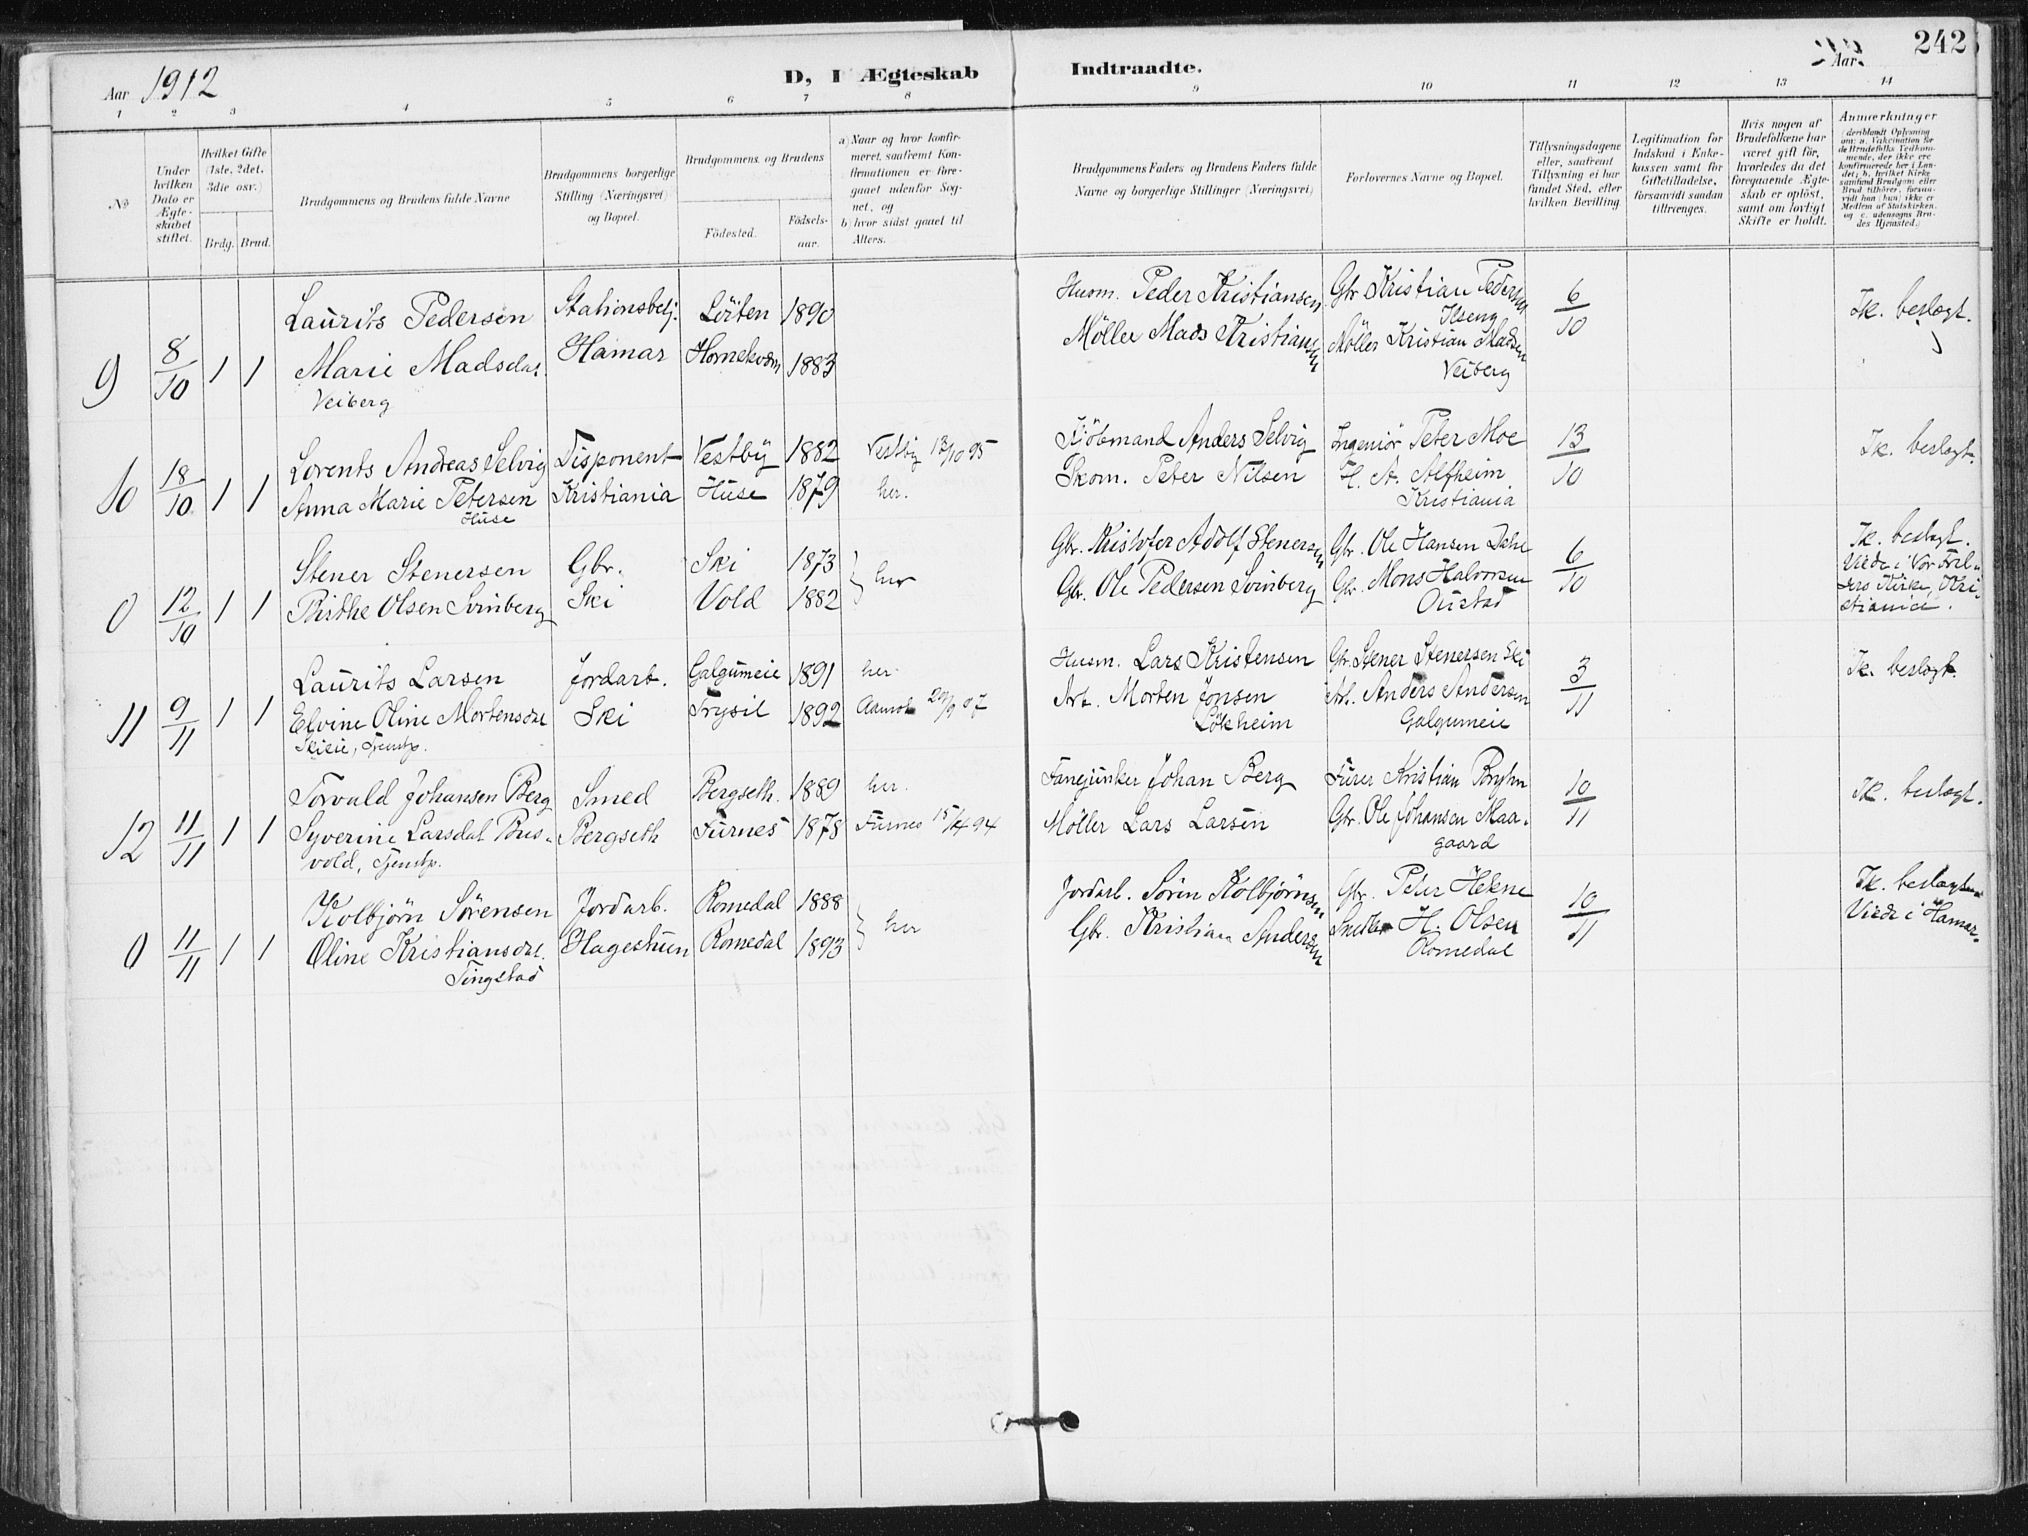 Aar 1912
D, I Ægteskab Indtraadte.
Aar
242
1 2 3 4 5 6 7 8 9 10 11 12 13 14
No
Under hvilken Dato er Ægteskabet stiftet.
Hvilket Gifte (1ste, 2det, 3die osv.)
Brdg. Brud.
Brudgommens og Brudens fulde Navne
Brudgommens borgerlige Stilling (Næringsvei) og Bopæl.
Brudgommens og Brudens
Fødested.
Fødselsaar.
a) Naar og hvor konfirmeret, saafremt Konfirmationen er foregaaet udenfor Sognet, og
b) hvor sidst gaaet til Alters.
Brudgommens Faders og Brudens Faders fulde Navne og borgerlige Stillinger (Næringsvei)
Forlovernes Navne og Bopæl.
Tillysningsdagene eller, saafremt Tillysning ei har fundet Sted, efter hvilken Bevilling.
Legitimation for Indskud i Enkekassen samt for Giftetilladelse, forsaavidt saadan tiltrænges.
Hvis nogen af Brudefolkene har været gift før, hvorledes da det foregaaende Ægteskab er opløst, samt om lovligt Skifte er holdt.
Anmærkninger (deriblandt Oplysning om: a. Vakcination for de Brudefolks Vedkommende, der ikke ere konfirmerede her i Landet; b. hvilket Kirkesamfund Brudgom eller Brud tilhører, forsaavidt han (hun) ikke er Medlem af Statskirken, og c. udensogns Brudes Hjemsted.)
9 8/10 1 1
Laurits Pedersen Stationsbetj. Löiten 1890 Husm. Peder Kristiansen Gbr. Kristian Pedersen Ilseng 6/10 Ik. beslægt.
Marie Madsdat. Hamar Hornekvæn 1883 Møller Mads Kristiansen Møller Kristian Madsen
Veiberg Veiberg
10 18/10 1 1
Lorents Andreas Selvig Disponent Vestby 1882 Vestby 13/10 95 Kjöbmand Anders Selvig Ingeniör Peter Moe 13/10 Ik. beslægt.
Anna Marie Petersen Kristiania Huse 1879 her. Skom. Peter Nilsen H. A. Alfheim
Huse Kristiania
0 12/10 1 1
Stener Stenersen Gbr. Ski 1873 her Gbr. Kristofer Adolf Stenersen Gbr. Ole Hansen Dahl 6/10 Ik. beslægt.
Birthe Olsen Svinberg Ski Vold 1882 Gbr. Ole Pedersen Svinberg Gbr. Mons Halvorsen Oustad Viede i Vor Frelsers Kirke, Kristiania.
11 9/11 1 1
Laurits Larsen Jordarb. Galgumeie 1891 her. Husm. Lars Kristensen Gbr. Stener Stenersen Ski 3/11 Ik. beslægt.
Elvine Oline Mortensdat Ski Trysil 1892 Aamot 29/9 07 Arb. Morten Jonsen Arb. Anders Andersen
Skieie, Tjenstp. Lökheim Galgumeie
12 11/11 1 1
Torvald Johansen Berg Smed Bergseth. 1889 her. Fanejunker Johan Berg Furer Kristian Bryhn 10/11 Ik. beslægt.
Syverine Larsdat Bus- Bergseth Furnes 1878 Furnes 15/4 94 Møller Lars Larsen Gbr. Ole Johansen Maa-
vold, Tjenstp. gaard
0 11/11 1 1
Kolbjörn Sørensen Jordarb. Romedal 1888 her Jordarb. Sörin Kolbjørnsen Gbr. Peter Hekne 10/11 Ik. beslægtet
Oline Kristiansdat. Hagestuen Romedal 1893 Gbr. Kristian Andersen H. Olsen Viede i Hamar.
Tingstad Romedal